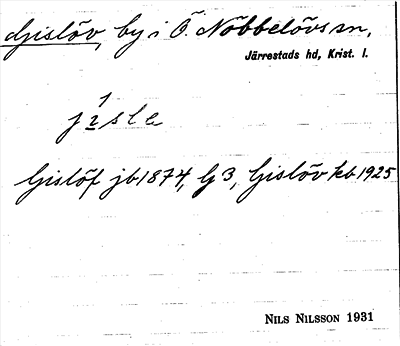 Gislöv, by i Ö. Nöbbelövs sn,
Järrestads hd, Krist. l.
Gislöf jb 1874, G 3, Gislöv kb 1925
NILS NILSSON 1931